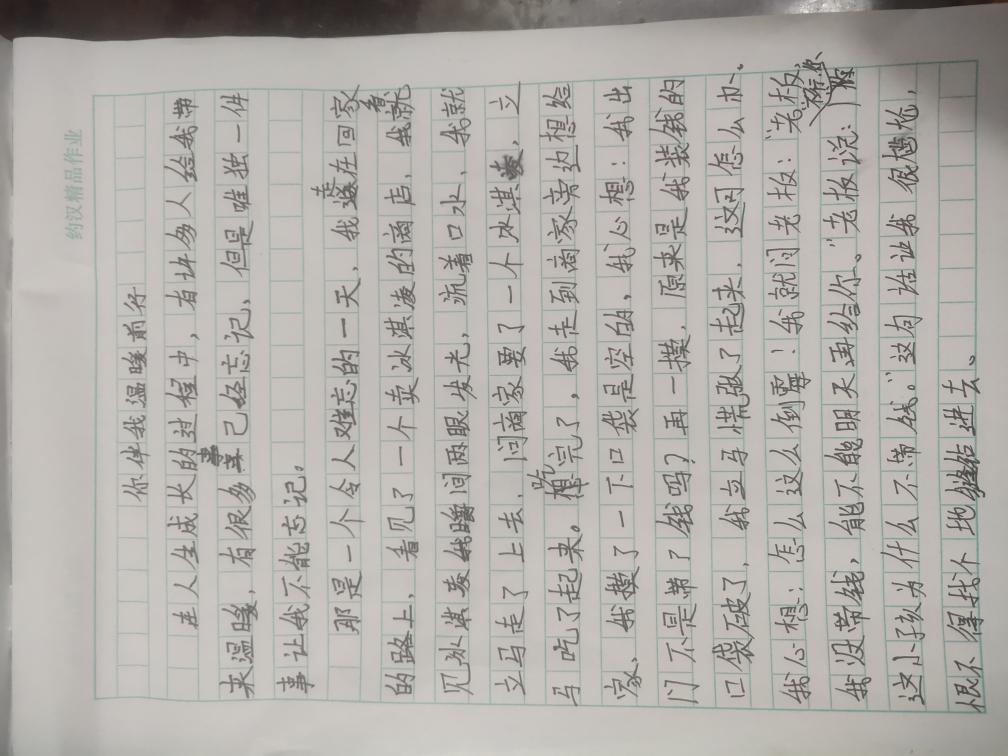 约汉精品作业
你伴我温暖前行
在人生成长的过程中，有许多人会给我带
来温暖，有很多事已经忘记，但是唯独一件
事让我不能忘记。
那是一个令人难忘的一天，我走在回家
的路上，看见了一个卖冰淇凌的商店，我就
见冰淇凌我瞬间两眼发光，流着口水，我就
立马走了上去，问商家要了一个冰淇凌，立
马吃了起来。吃完了，我走到商家旁边想给
家，我摸了一下口袋是空的，我心想：我出
门不是带了钱吗？再一摸，原来是我装钱的
口袋破了，我立马慌张了起来，这可怎么办。
我心想：怎么这么倒霉！我就问老板：“老板，
我没带钱，能不能明天再给你。”老板说：“你
这小孩为什么不带钱。”这句话让我很尴尬，
恨不得找个地缝钻进去。